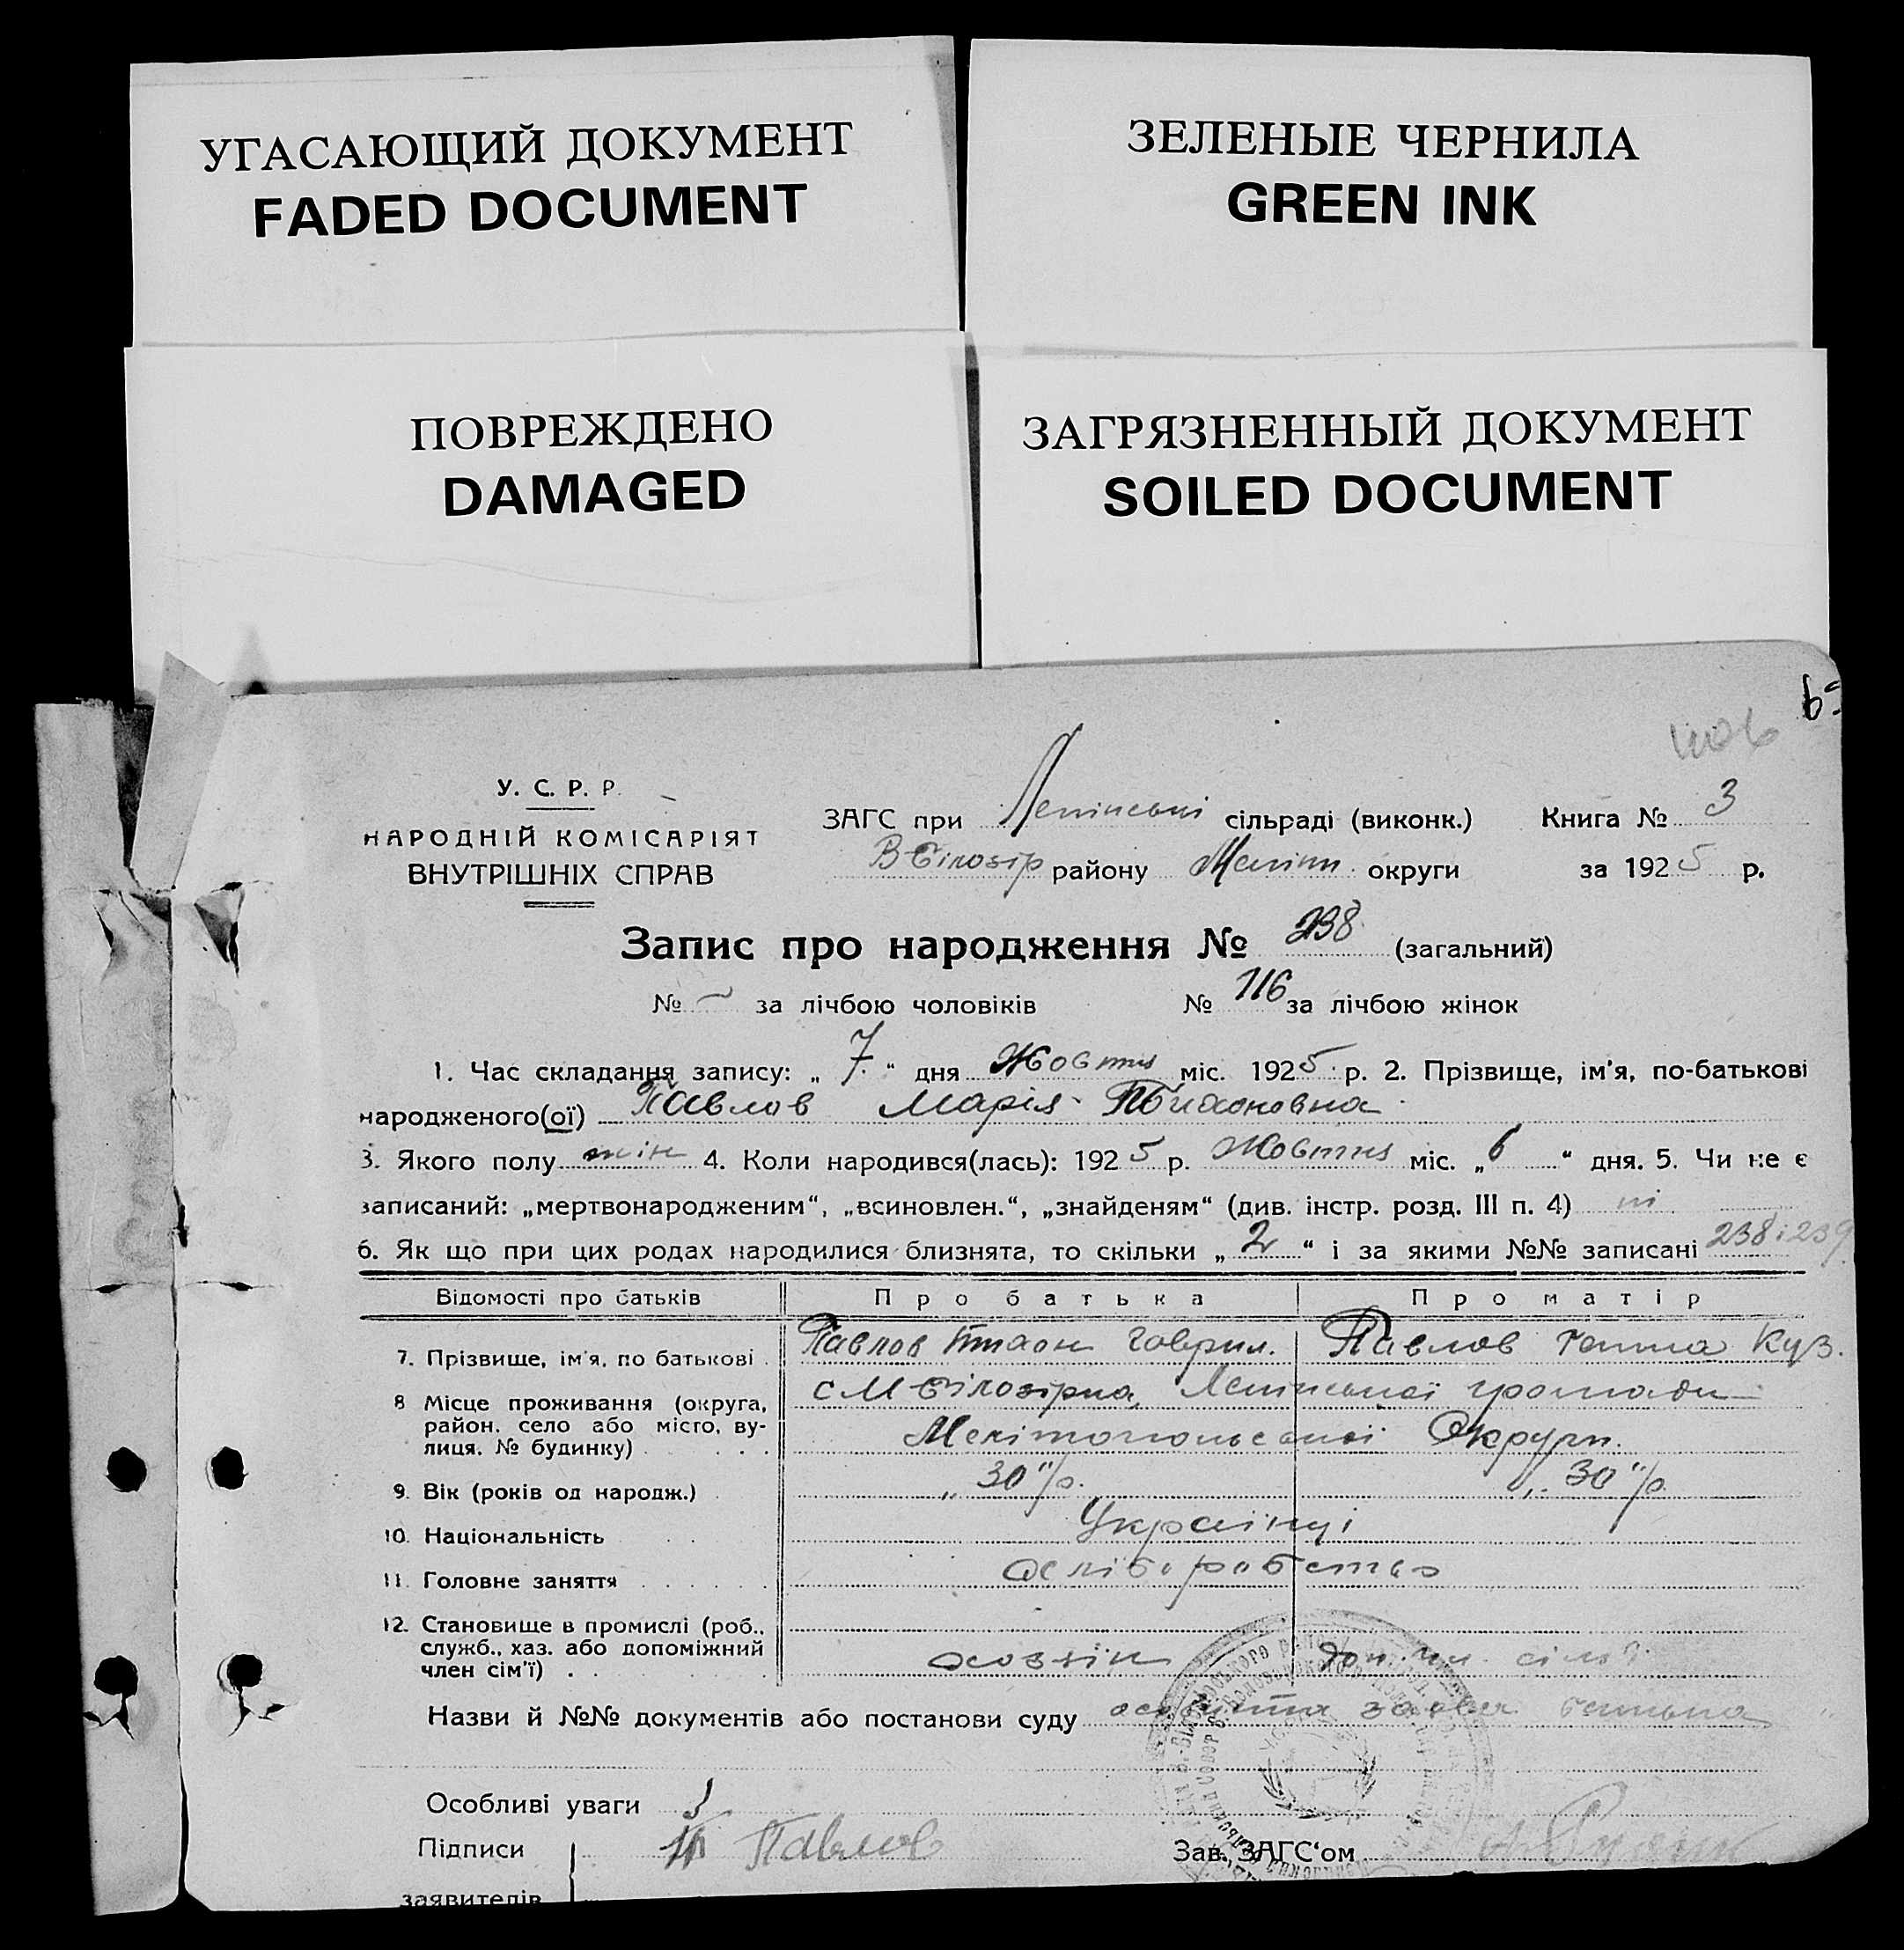 УГАСАЮЩИЙ ДОКУМЕНТ
FADED DOCUMENT
ЗЕЛЕНЫЕ ЧЕРНИЛА
GREEN INK
ПОВРЕЖДЕНО
DAMAGED
ЗАГРЯЗНЕННЫЙ ДОКУМЕНТ
SOILED DOCUMENT
У. С. Р. Р.
НАРОДНІЙ КОМІСАРІЯТ
ВНУТРІШНІХ СПРАВ
ЗАГС при Ленінські сільраді (виконк.) Книга № 3
В Білозір району Меліт. округи за 1925 р.
Запис про народження № 238 (загальний)
№ – за лічбою чоловіків № 116 за лічбою жінок
1. Час складання запису: „ 7 “ дня Жовтня міс. 1925 р. 2. Прізвище, ім'я, по-батькові
народженого(ої) Павлов Марія
3. Якого полу жін 4. Коли народився(лась): 1925 р. Жовтня міс. „ 6 “ дня. 5. Чи не є
записаний: „мертвонародженим“, „всиновлен.“, „знайденям“ (див. інстр. розд. III п. 4) ні
6. Як що при цих родах народилися близнята, то скільки „ 2 “ і за якими №№ записані 238 і 239
Відомості про батьків Про батька Про матір
7. Прізвище, ім'я, по батькові . Павлов Гаврил. Павлов Ганна Куз.
8 Місце проживання (округа, район, село або місто, вулиця, № будинку) . . . . с М Білозірка, Ленінської громади
Мелітопольської Округи.
9. Вік (років од народж.) . „ 30 "/р. „ 30 "/р
10. Національність . . Українці
11. Головне заняття . . . . . . хліборобство
12. Становище в промислі (роб., служб., хаз. або допоміжний член сім'ї) . . хозяїн доп. чл. сімї
Назви й №№ документів або постанови суду особиста заява батька
Особливі уваги
Підписи Павлов Зав. ЗАГС'ом
заявителів